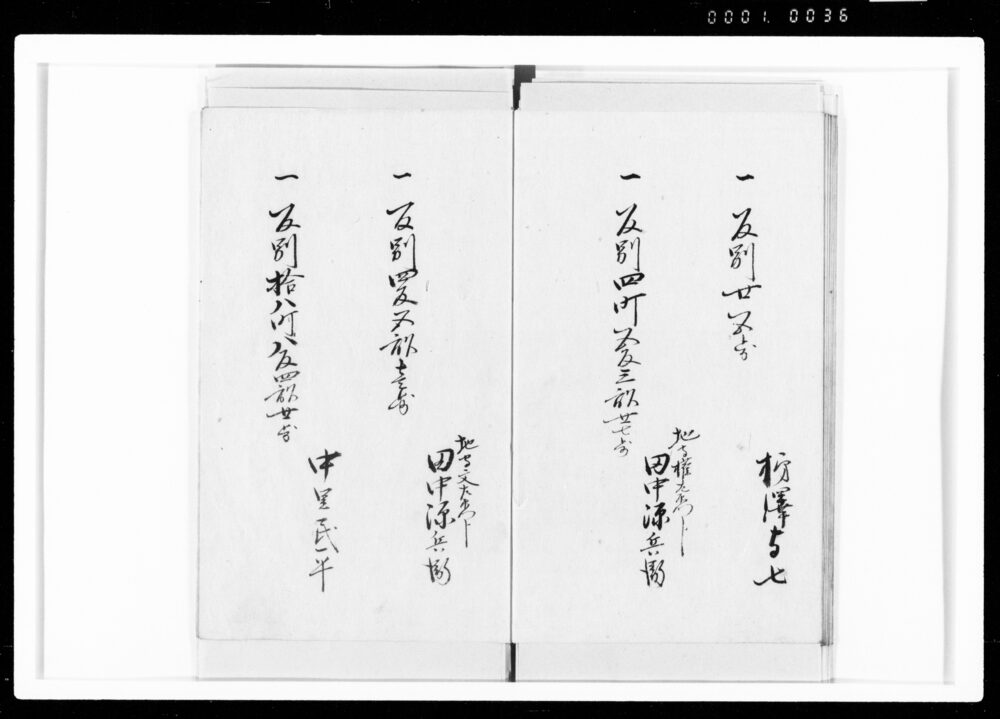 0001. 0036
一 反別廿五歩
柳澤与七
一 反別四町五反三畝廿七歩
地守権左衛門
田中源兵衛
一 反別四反五畝十壱歩
地守文左衛門
田中源兵衛
一 反別拾八町八反四畝廿歩
中里民平